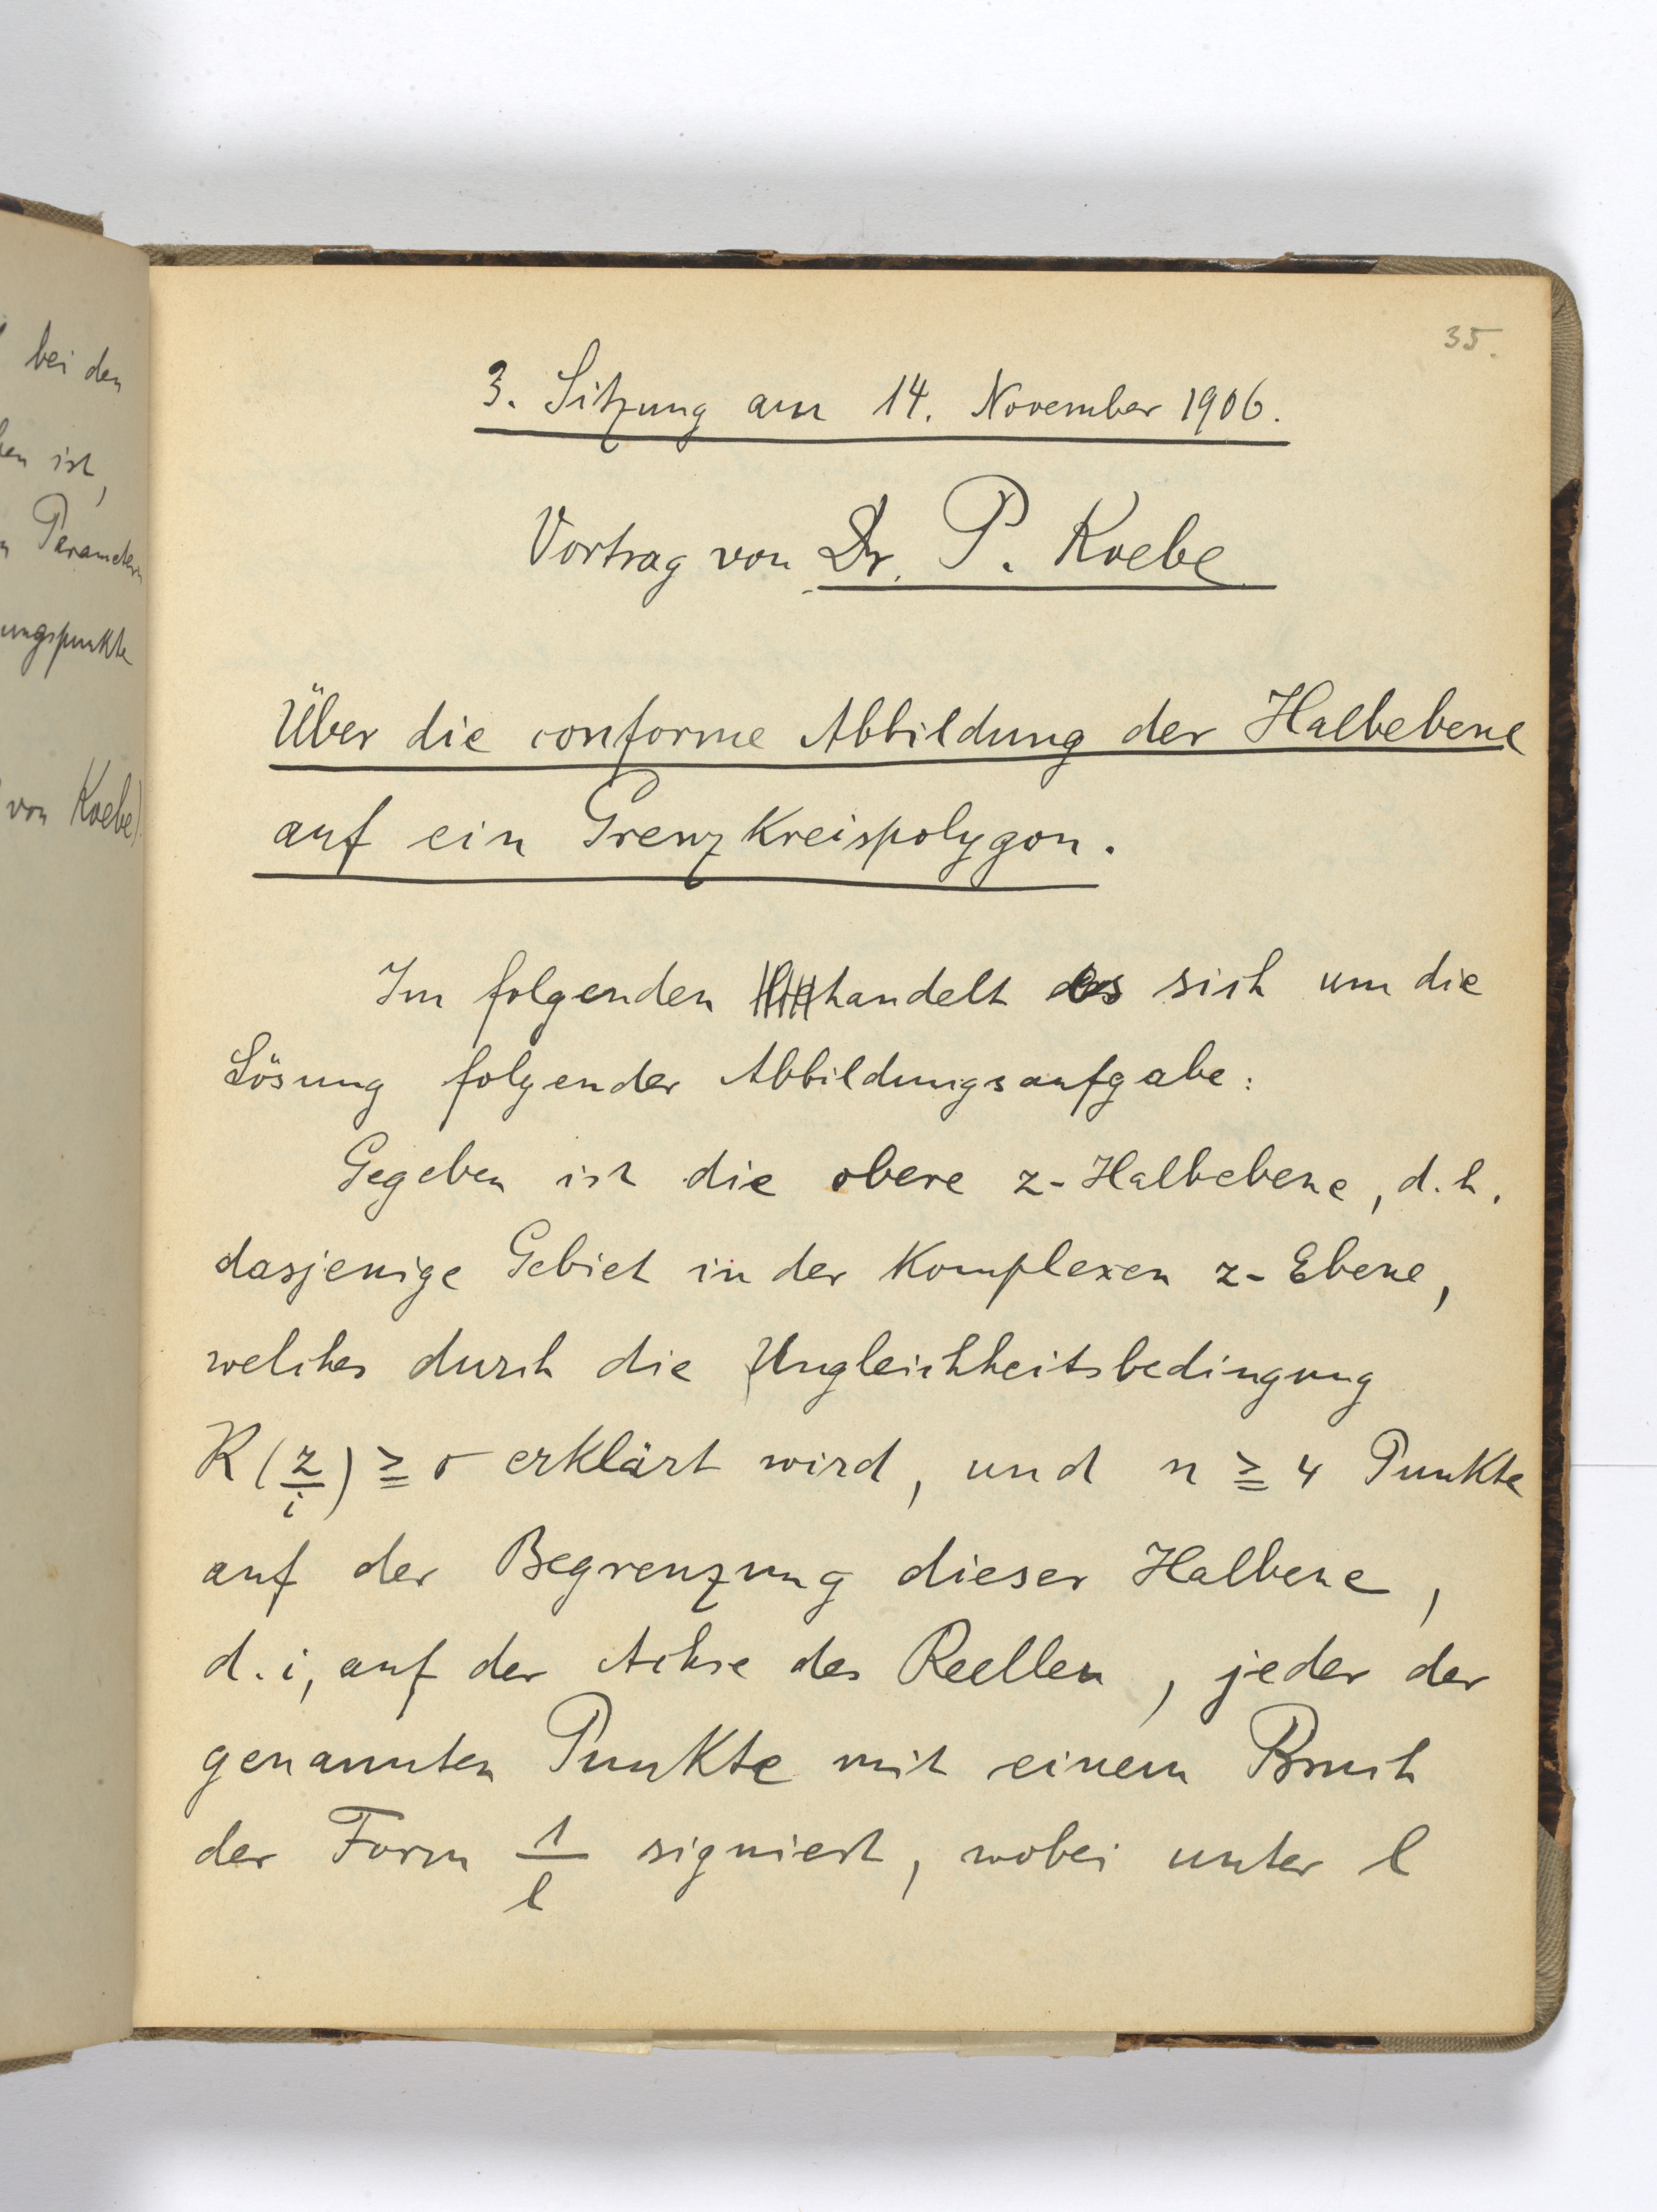 bei den
ist,
Parametern
ungspunkte
von Koebe)
35.
3. Sitzung am 14. November 1906.
Vortrag von Dr. P. Koebe
Über die conforme Abbildung der Halbebene
auf ein Grenzkreispolygon.
Im folgenden handelt es sich um die
Lösung folgender Abbildungsaufgabe:
Gegeben ist die obere z-Halbebene, d.h.
dasjenige Gebiet in der Komplexen z-Ebene,
welches durch die Ungleichheitsbedingung
R(z/i) ≧ 0 erklärt wird, und n ≧ 4 Punkte
auf der Begrenzung dieser Halbene,
d.i, auf der Achse des Reellen, jeder der
genannten Punkte mit einem Bruch
der Form 1/l signiert, wobei unter l